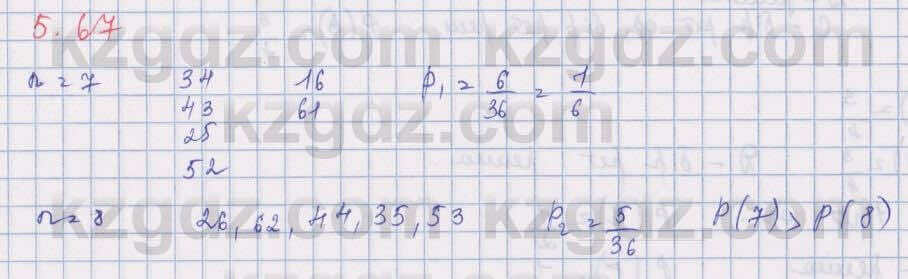 5.67
n = 7 34 16 P₁ = 6/36 = 1/6
43 61
25
52
n = 8 26, 62, 44, 35, 53 P₂ = 5/36 P(7) > P(8)
kzgdz.com kzgdz.com
kzgdz.com
kzgdz.com kzgdz.com